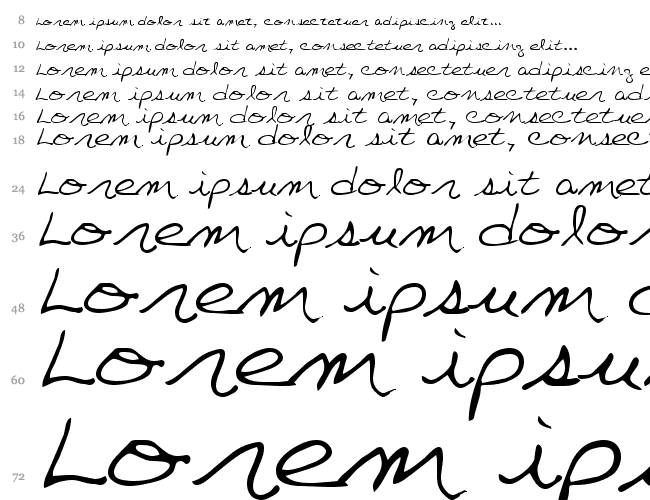 8 Lorem ipsum dolor sit amet, consectetuer adipiscing elit...
10 Lorem ipsum dolor sit amet, consectetuer adipiscing elit...
12 Lorem ipsum dolor sit amet, consectetuer adipiscing e
14 Lorem ipsum dolor sit amet, consectetuer ad
16 Lorem ipsum dolor sit amet, consectetue
18 Lorem ipsum dolor sit amet, consec
24 Lorem ipsum dolor sit amet
36 Lorem ipsum dolo
48 Lorem ipsum
60 Lorem ipsu
72 Lorem ip